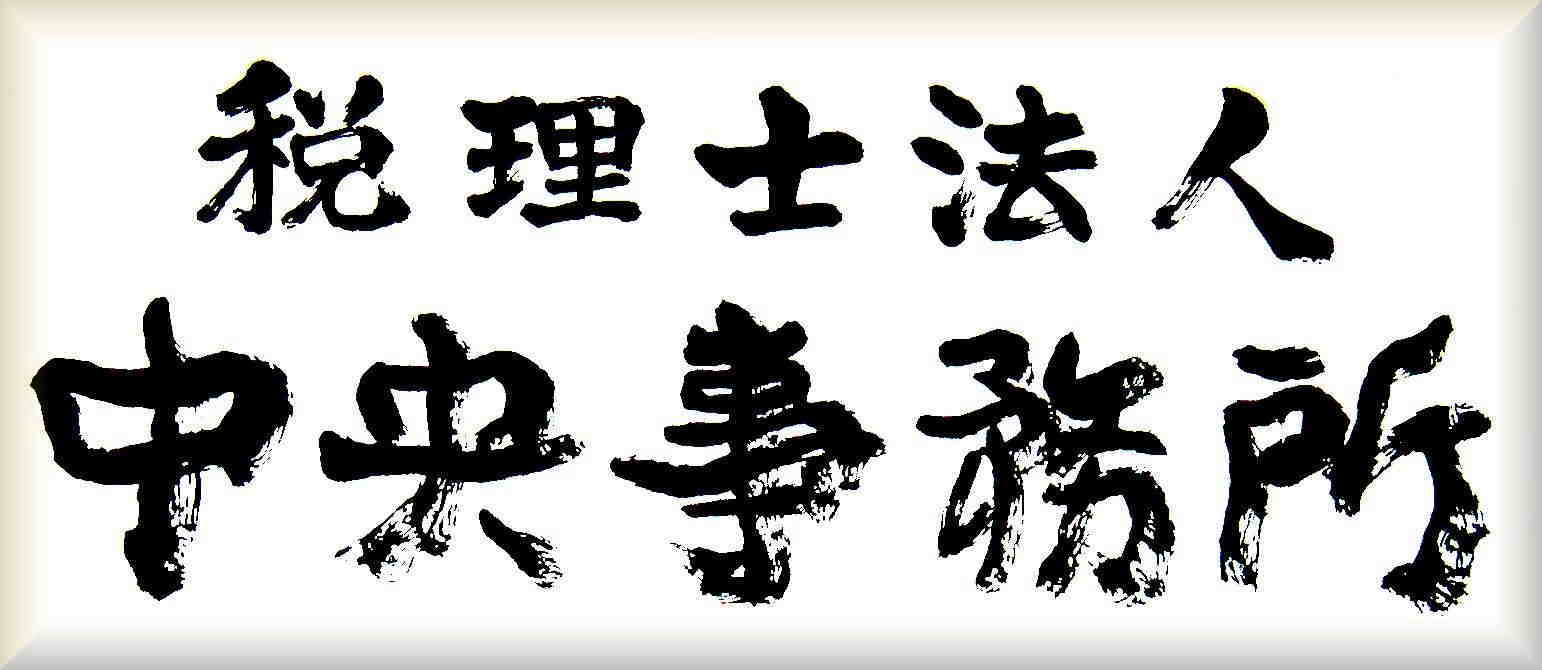 税理士法人
中央事務所